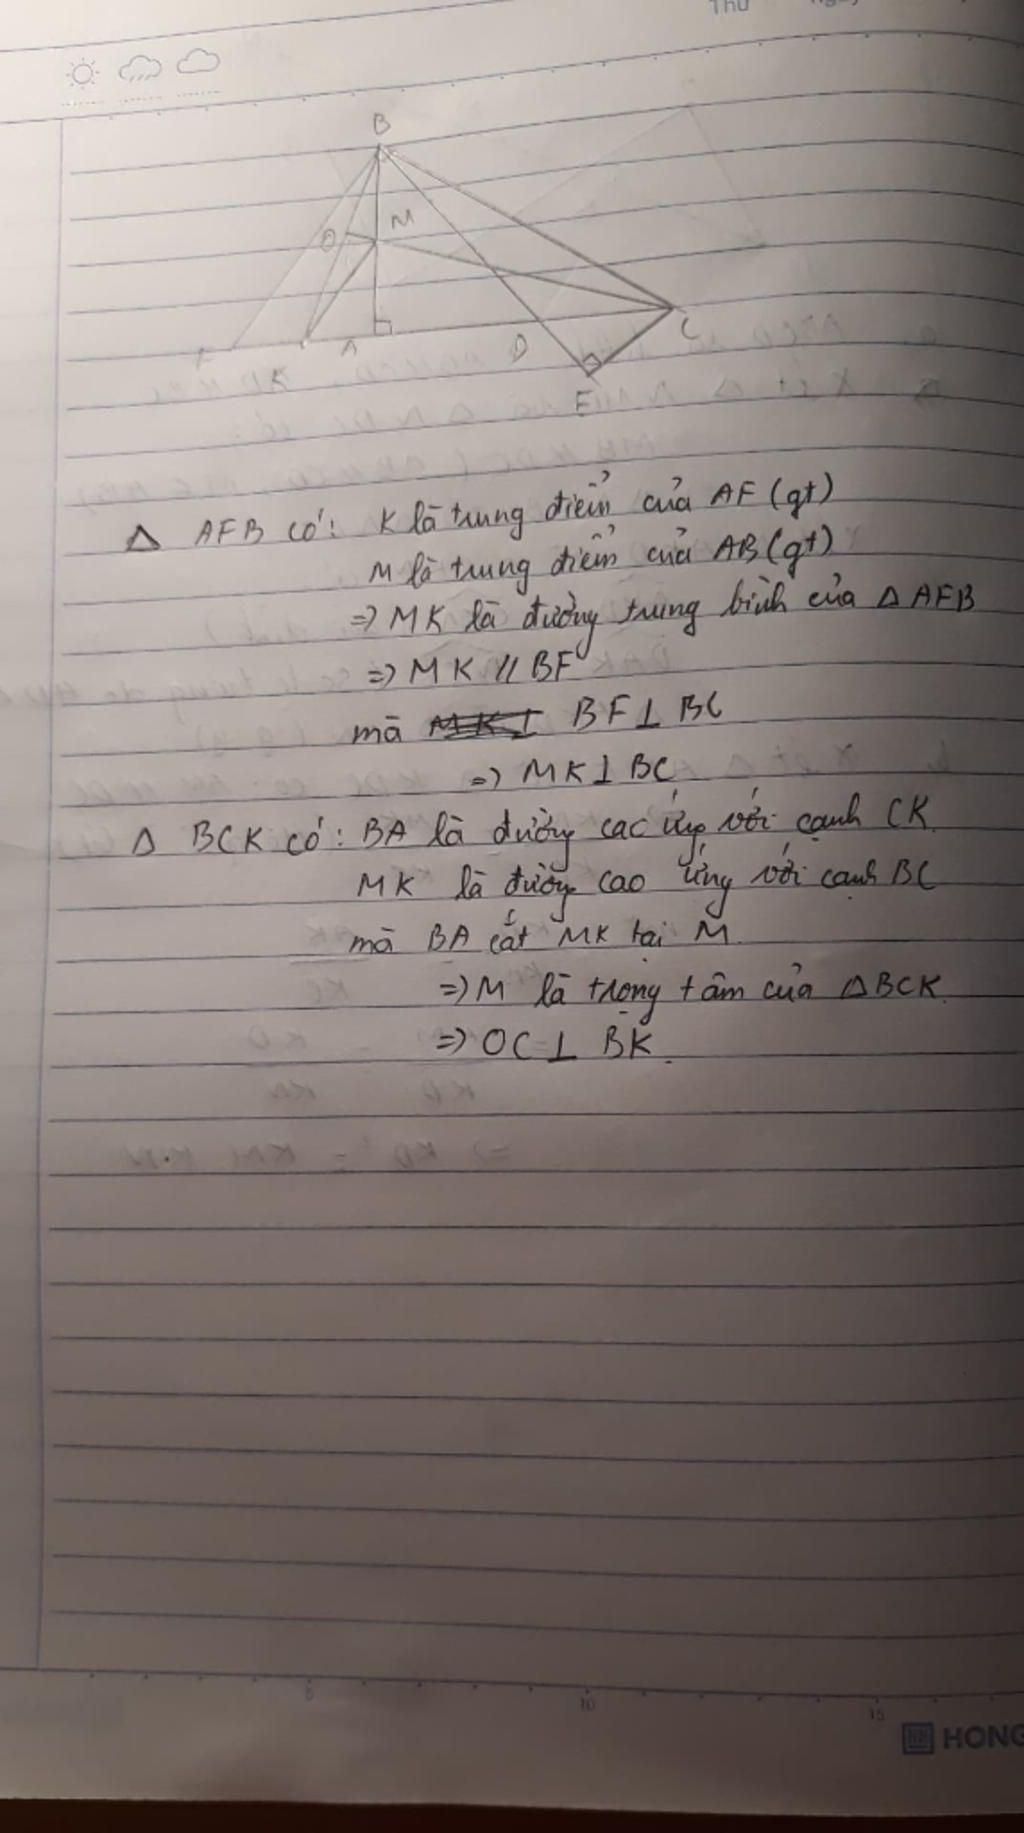 Thứ
B
M
O
F
K
A
D
C
E
Δ AFB có: K là trung điểm của AF (gt)
M là trung điểm của AB (gt)
=> MK là đường trung bình của Δ AFB
=> MK // BF
mà BF ⊥ BC
=> MK ⊥ BC
Δ BCK có: BA là đường cac ứng với cạnh CK
MK là đường cao ứng với cạnh BC
mà BA cắt MK tại M.
=> M là trọng tâm của ΔBCK.
=> OC ⊥ BK.
5
10
15
HONG